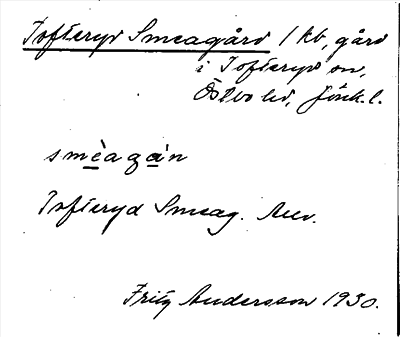 Tofteryd Smeagård 1 kb, gård
i Tofteryd sn,
Östbo hd, Jönk. l.
smèagạ̊́n
Tofteryd Smeag. Anv.
Fritz Andersson 1930.